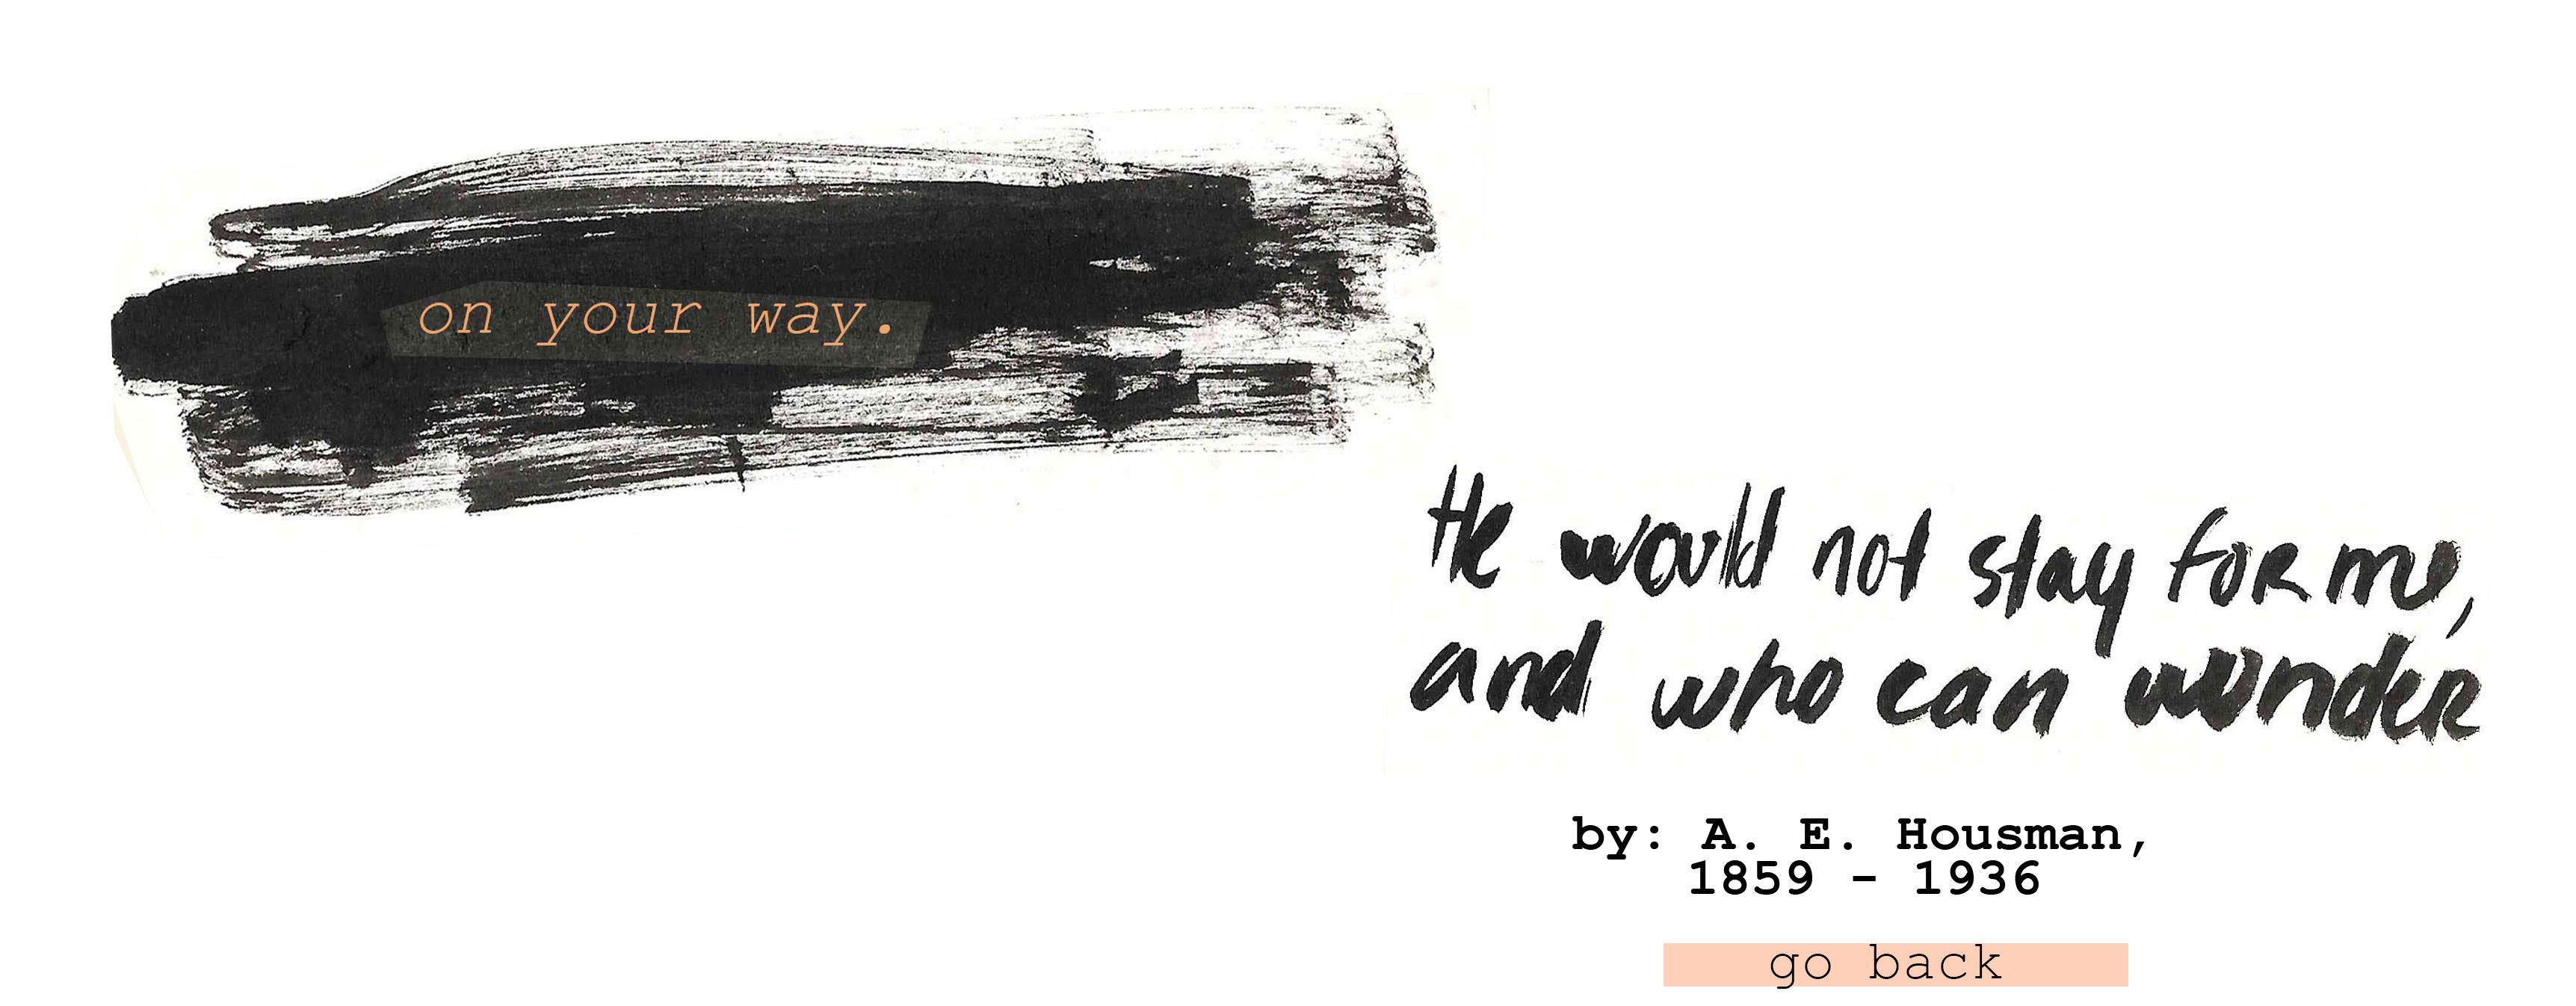 on your way.
He would not stay for me,
and who can wonder
by: A. E. Housman,
1859 - 1936
go back